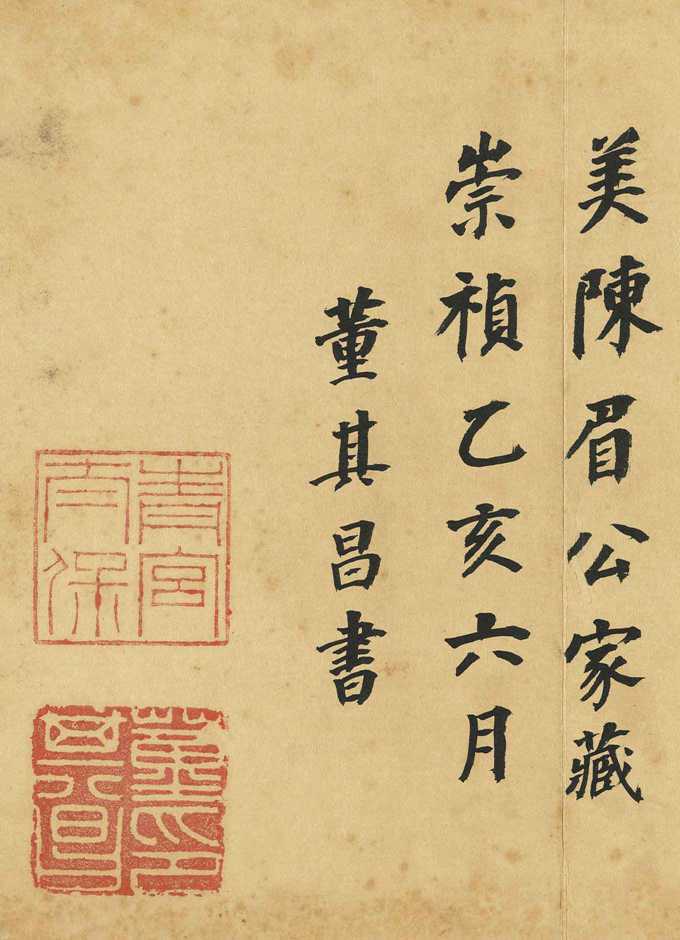 美陳眉公家藏
崇禎乙亥六月
董其昌書
青宮太保
董其昌印